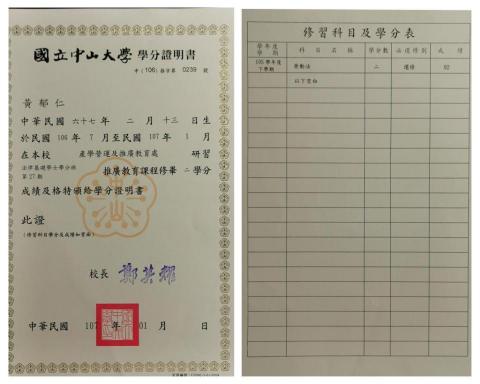 國立中山大學 學分證明書
中(106)推字第 0239 號
黃郁仁
中華民國 六十七年 二月 十三日生
於民國 106年 7月至民國 107年 1月
在本校 產學營運及推廣教育處 研習
法律基礎學士學分班
第27期
推廣教育課程修畢 二學分
成績及格特頒給學分證明書
此證
(修習科目學分及成績如背面)
校長 鄭英耀
中華民國 107 年 01 月 日
修習科目及學分表
學年度
學期
科目名稱
學分數
必選修別
成績
105學年度
下學期
勞動法
二
選修
92
以下空白